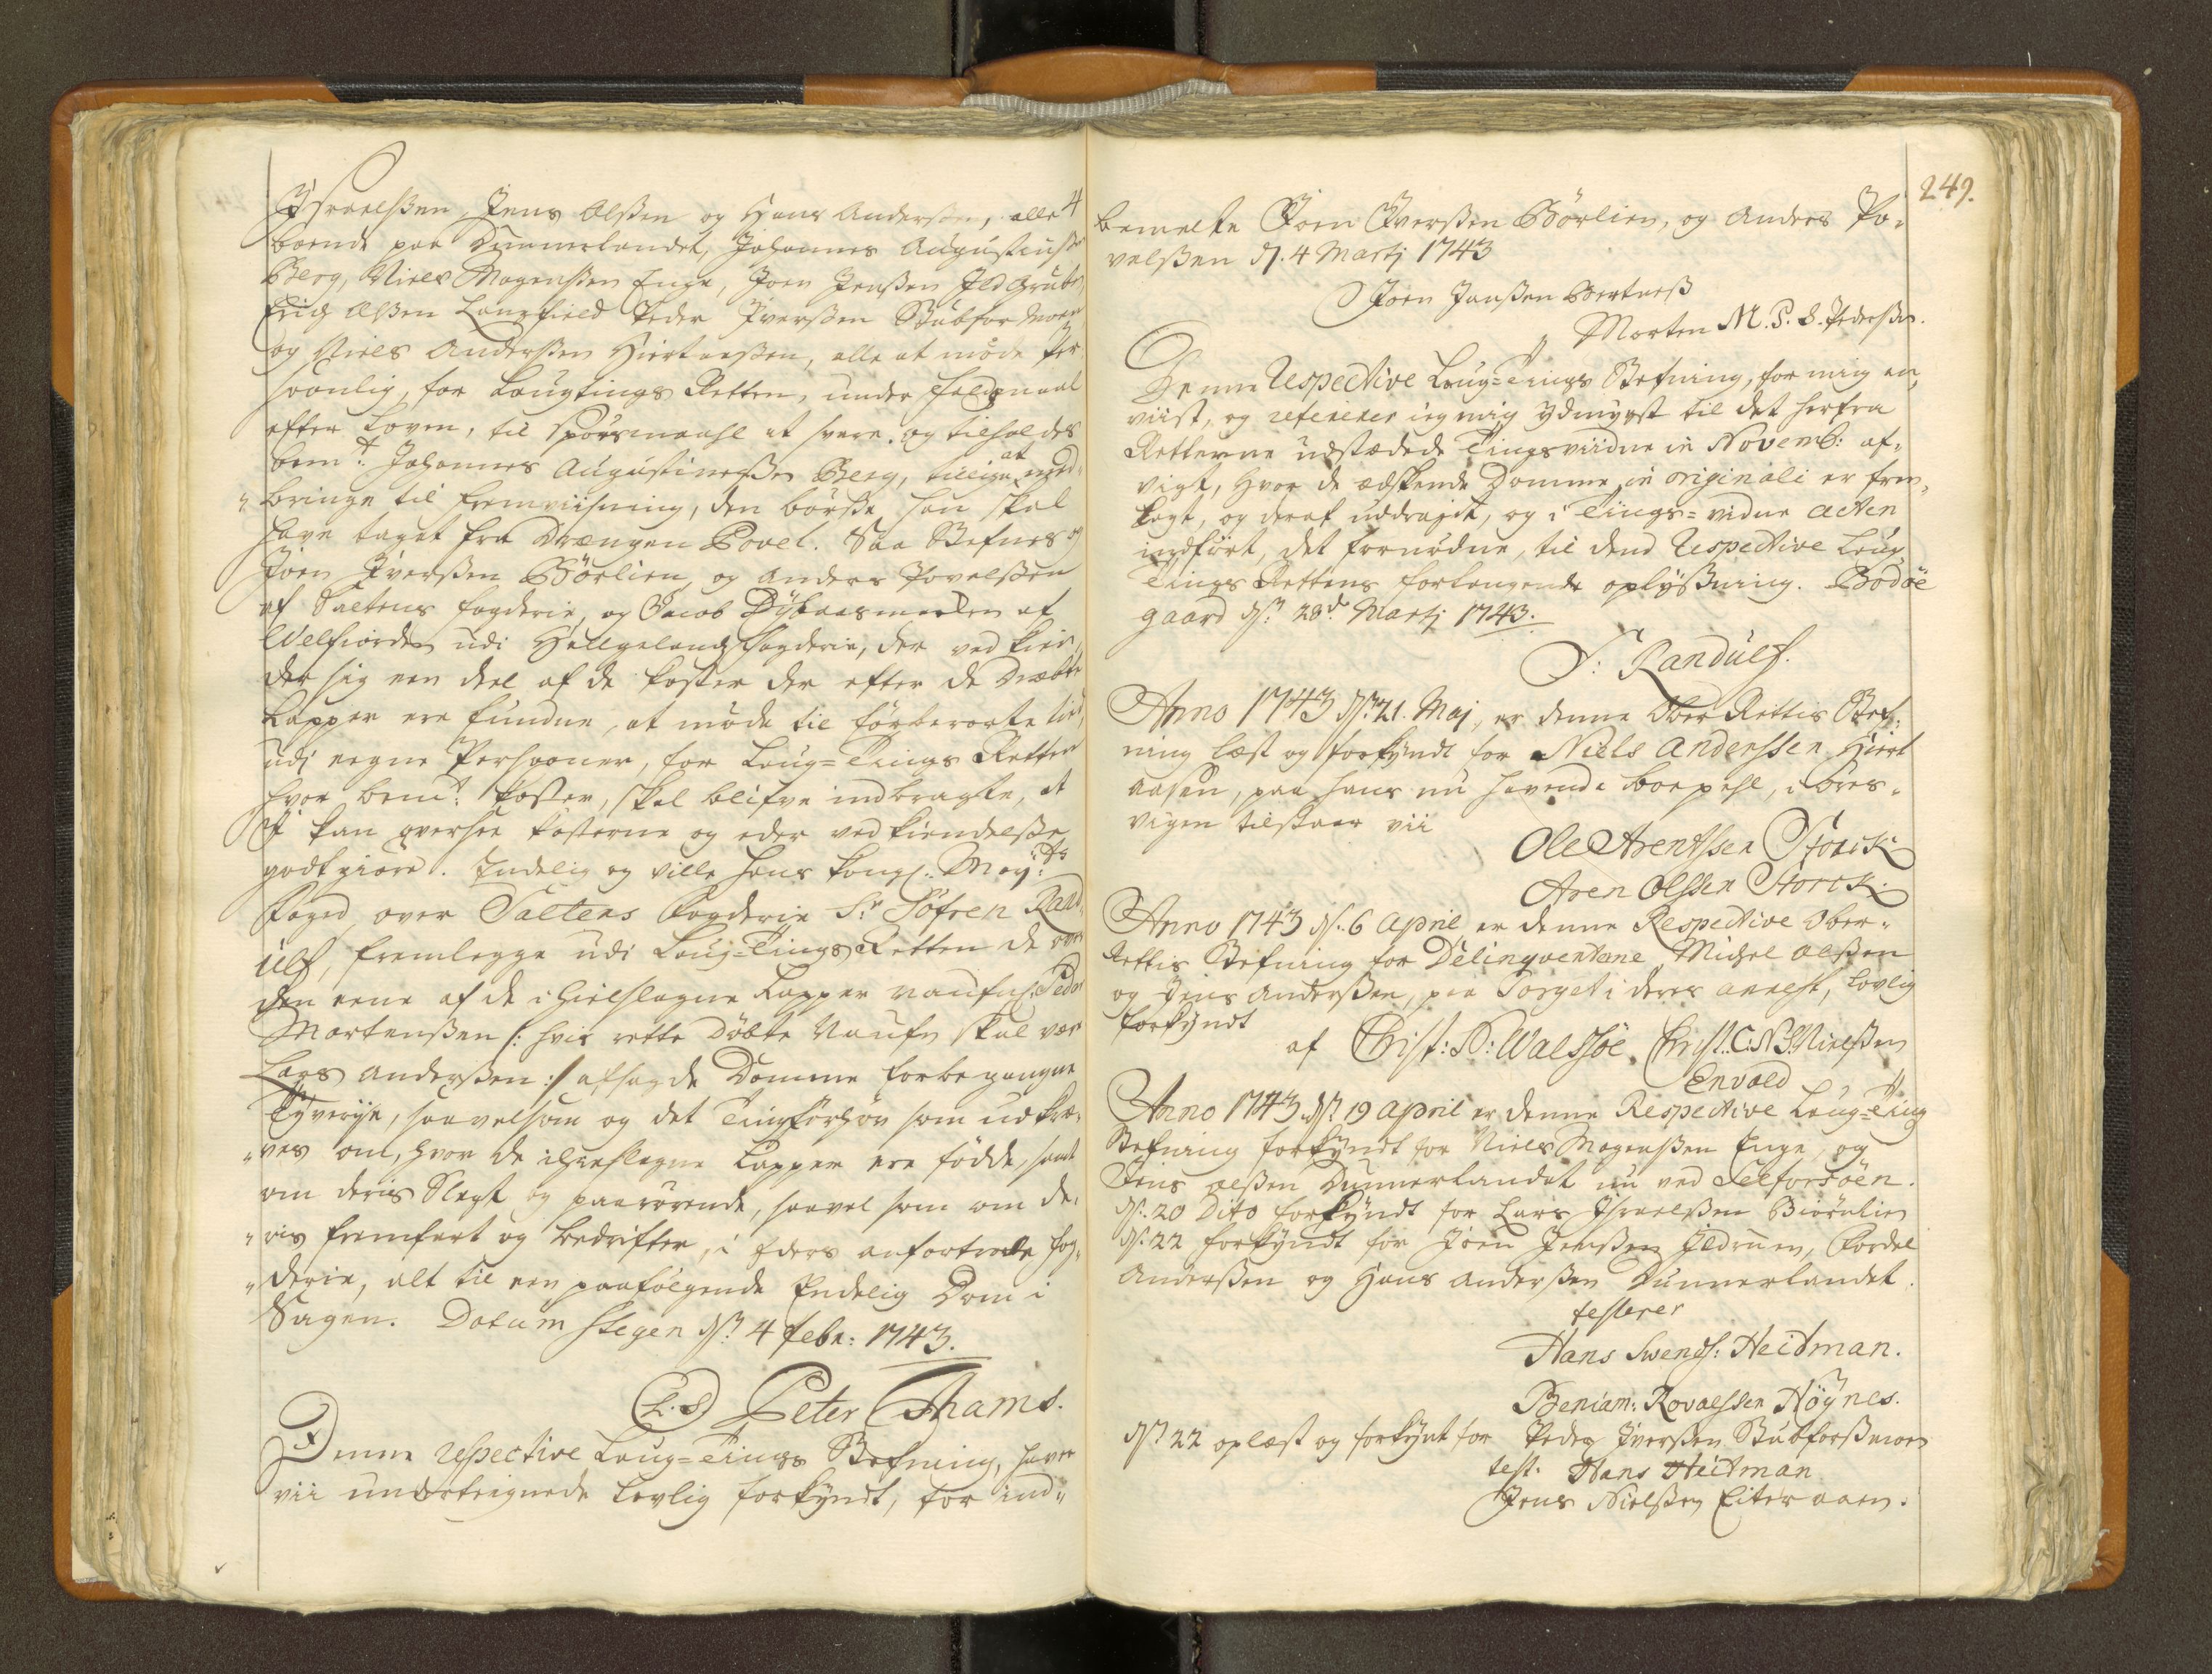 Israelßen, Jens Olßen og Hans Anderßen, alle 4
boende paa Dunnerlandet, Johannes Augustinusß:
Berg, Niels Mogenßen Enge, Joen Jenßen Ildgruben
Erich Olßen Langfield Peder Iverßen Stubforßmoen
og Niels Anderßen Hiertaaßen, alle at møde Per
soonlig, for Laugtings Retten, under Faldsmaal
efter Loven, til spørsmaahl at svare. og tilholdes
bemt: Johannes Augustinusßen Berg, tillige at med-
bringe til fremviisning, den børße han skal
have taget fra Drængen Povel. Saa Stefnes og
Joen Iverßen Børlien, og Anders Povelßen
af Saltens fogderie, og Jacob Dybaasmarken af
Velfiorden udi Helgelands fogderie, der ved kien-
der sig een deel af de koster der efter de Dræbte
Lapper ere fundne, at møde til førberørte tiid,
udi eegne Persooner, for Laug-Tings Retten
hvor bemte: koster, skal blifve indbragte, at
I kan oversee kosterne og eder vedkiendelße
godtgiøre. Endelig og ville hans kongl: Mayts:
Foged over Saltens Fogderie Sr Søfren Rand-
ulf, fremlegge udi Laug-Tings Retten de over
den eene af de ihielslagne Lapper naufnl: Peder
Mortenßen /: hvis rette døbte Naufn skal være
Lars Anderßen :/ afsagde Domme forbegangne
Tyverije, saavelsom og det Tingsforhør som udkræ-
ves om, hvor de ihielslagne Lapper ere fødde, samt
om deris Slegt og paarørende, saavel som om de-
ris fremfart og bedrifter, i Eders anfortroede fog-
derie, alt til een paafølgende Endelig Dom i
Sagen. Datum Stegen dn: 4 febr: 1743.
(L.S) Peter Thams.
Denne respective Laug-Tings Stefning, haver
vii underteignede lovlig forkyndt, for ind-
249.
bemelte Joen Iverßen Børlien, og Anders Po-
velßen d. 4 Martj 1743
Joen Janßen Hertnæß
Morten M. P. S. Pederßen.
Denne Respective Laug-Tings Stefning, for mig an-
viist, og refererer ieg mig ydmygst til det herfra
Retterne udstædede Tingsviidne in Novemb: af-
vigt, hvor de æskende Domme in originali er frem-
lagt, og deraf uddragit, og i Tings-vidne acten
indført, det fornødne, til dend Respective Laug
Tings Rettens forlangende oplyßning. Bodøe
gaard dn: 28de Martj 1743.
S: Randulf.
Anno 1743 dn: 21. Maj, er denne Ober Rettis Stef-
ning læst og forkyndt for Niels Anderssen Hiert
aasen, paa hans nu havende boepæhl, i
vigen tilstaar vii
Ole Arentssen Storck
Aren Olssen Storck.
Anno 1743 d: 6 April er denne Respective Ober-
Rettis Stefning for Delinqventerne Michel Olßen
og Jens Anderßen, paa Torget i deres arrest, lovlig
forkyndt
af Christ: D: Walssøe. Christ: C. N. S. Nielßen
Envold
Anno 1743. dn: 19 April er denne Respective Laug-Ting
Stefning forkyndt for Niels Mogenßen Enge, og
Jens Olßen Dunnerlandet nu ved Selforsøen.
d: 20 Dito forkyndt for Lars Israelßen Biørnlien
d: 22 forkyndt for Joen Jenßen Ildruen, Fordel
Anderßen og Hans Anderßen Dunnerlandet.
testerer
Hans Swends: Heitman.
Beniam: Rovaelssen Høynes.
dn: 22 oplæst og forkynt for Peder Iverßen Stubforßmoen
test: Hans Heitman
Jens Nielßen Eiteraaen.